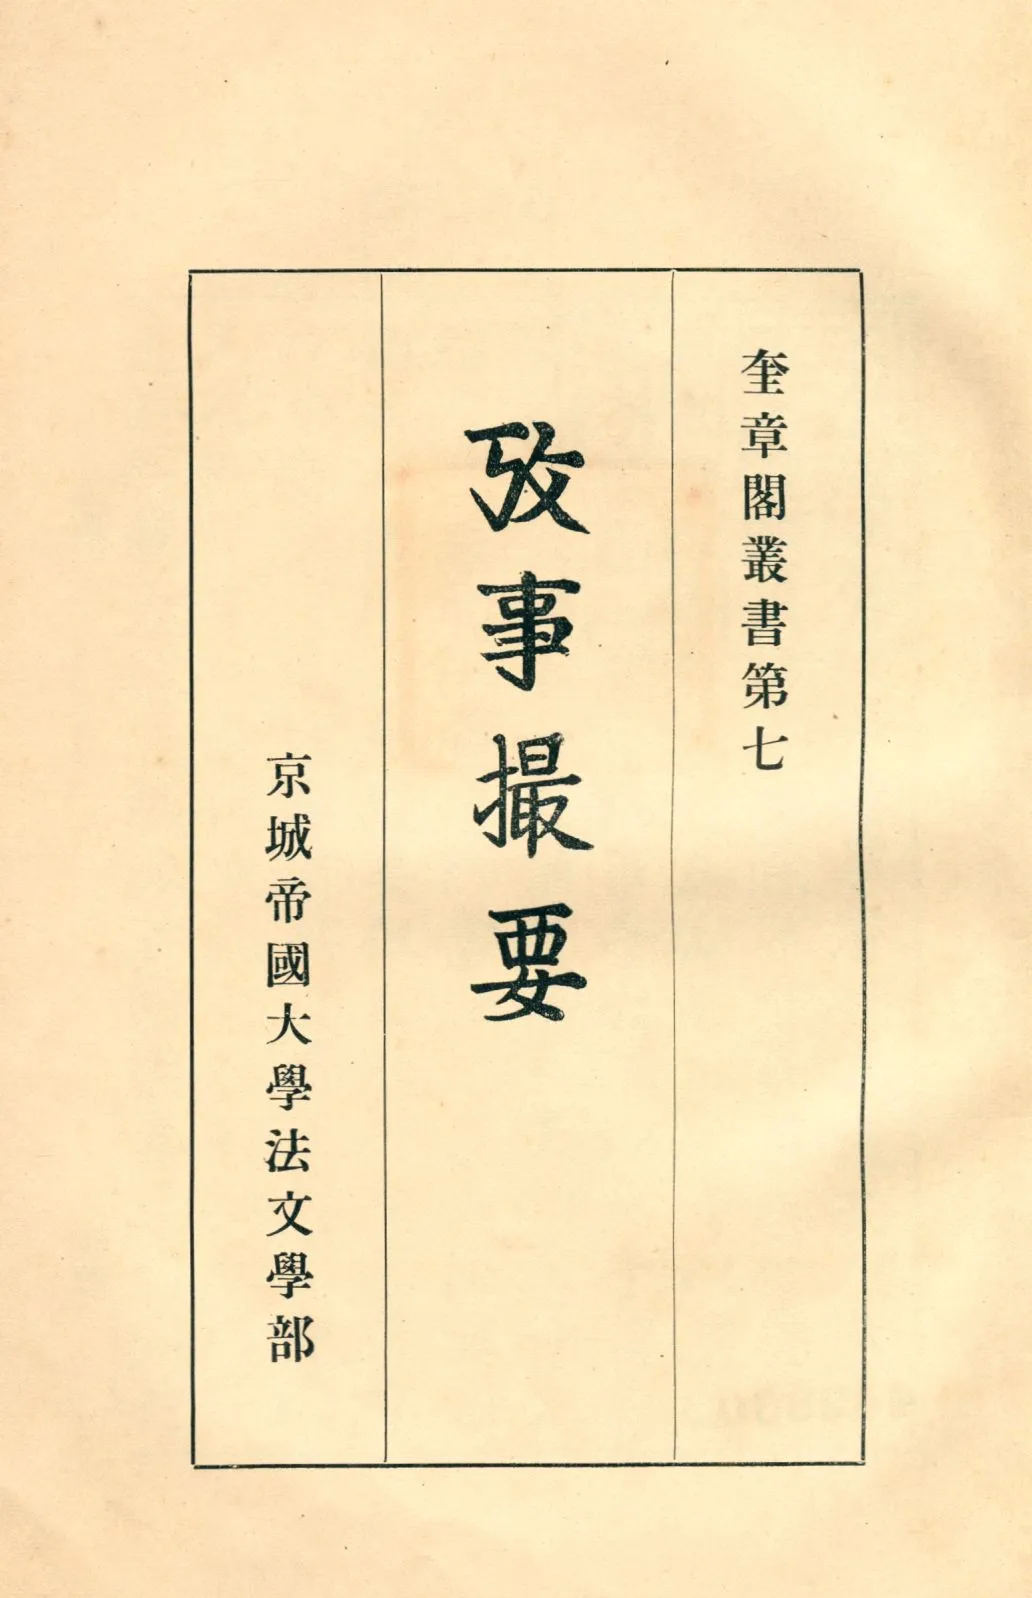 奎章閣叢書第七
攷事撮要
京城帝國大學法文學部